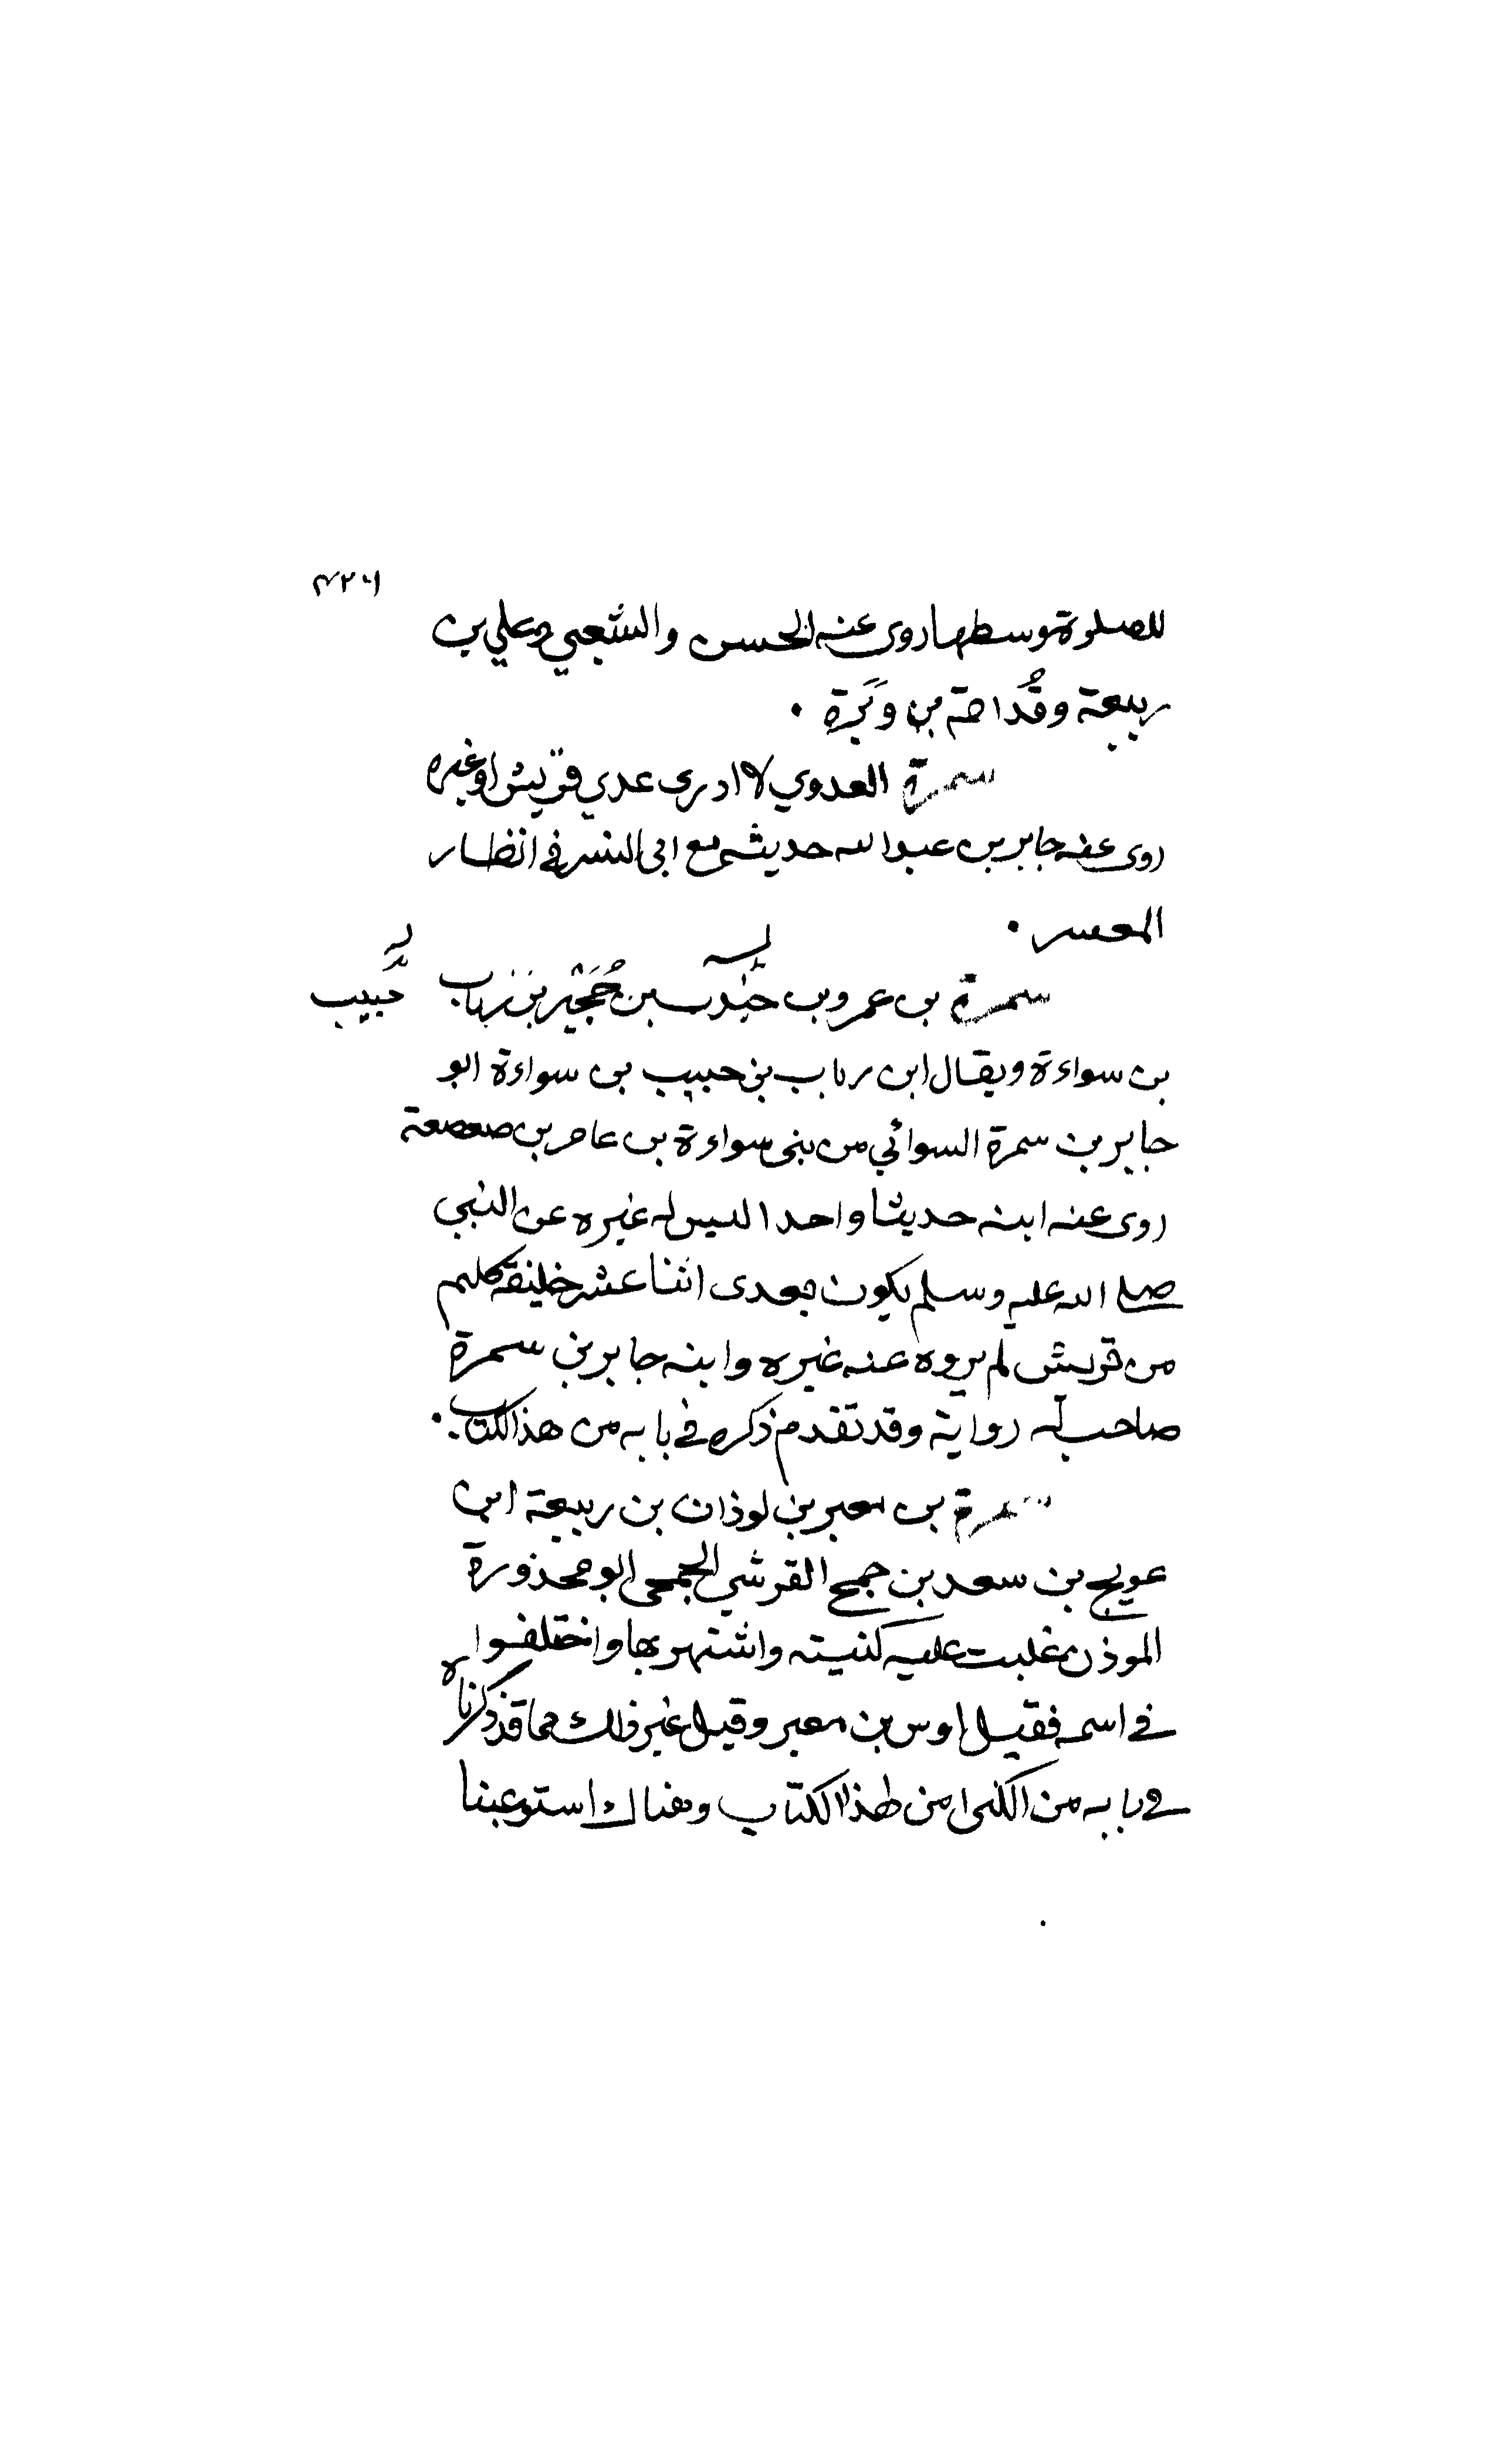 للصلوة وسطها روى عنه الحسن والشعبي وعلي بن
ربيعة وقُدامة بن وَبَرَة .
سمرة العدوي لا ادرى عدي قريش او غيره
روى عنه جابر بن عبد الله حديثه مع ابى اليسر في انظار
المعسر .
سمرة بن عمرو بن جندب بن حُجَيْر بن رياب
حبيب
بن سواءة ويقال ابن رياب بن حبيب بن سواءة ابو
جابر بن سمرة السوائي من بنى سواءة بن عامر بن صعصعة
روى عنه ابنه حديثا واحدا ليس له غيره عن النبي
صلى الله عليه وسلم يكون بعدى اثنا عشر خليفة كلهم
من قريش لم يروه عنه غيره وابنه جابر بن سمرة
صاحب له رواية وقد تقدم ذكره في بابه من هذا الكتاب .
سمرة بن معير بن لوذان بن ربيعة ابن
عويج بن سعد بن جمح القرشي الجمحى ابو محذورة
الموذن غلبت عليه كنيته واشتهر بها واختلفوا
في اسمه فقيل اوس بن معير وقيل غير ذلك مما قد ذكرناه
في بابه من الكنى من هذا الكتاب وهناك استوعبنا